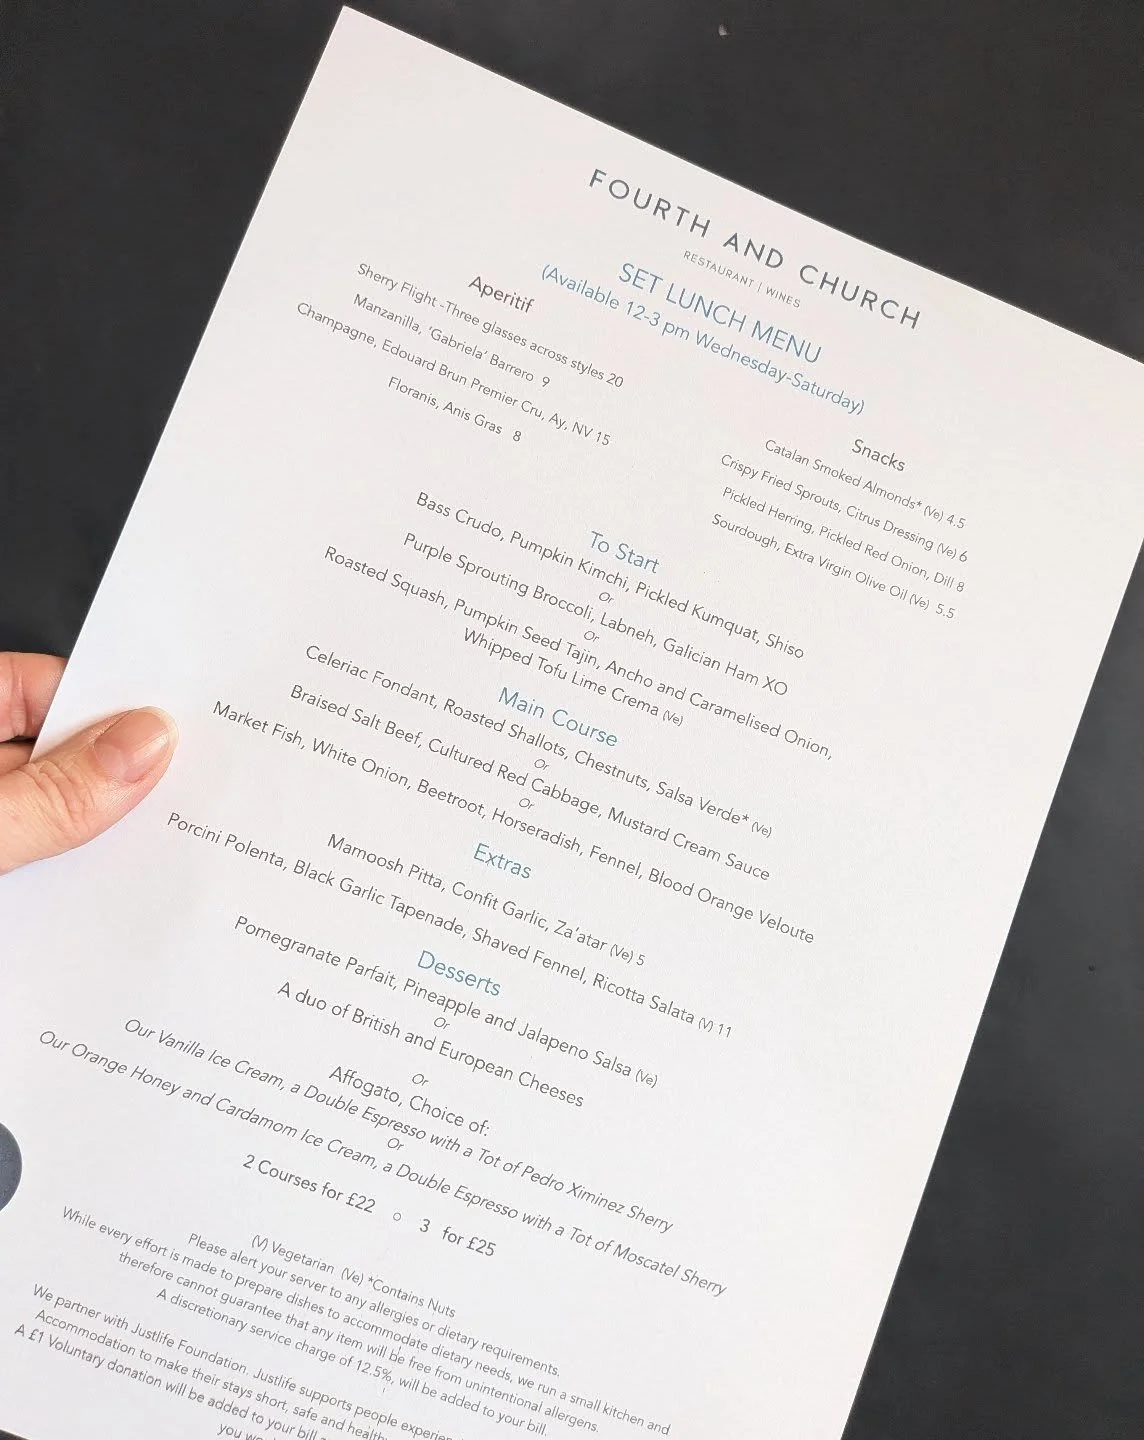 FOURTH AND CHURCH
RESTAURANT | WINES
SET LUNCH MENU
(Available 12-3 pm Wednesday-Saturday)
Aperitif
Sherry Flight -Three glasses across styles 20
Manzanilla, ‘Gabriela’ Barrero 9
Champagne, Edouard Brun Premier Cru, Ay, NV 15
Floranis, Anis Gras 8
Snacks
Catalan Smoked Almonds* (Ve) 4.5
Crispy Fried Sprouts, Citrus Dressing (Ve) 6
Pickled Herring, Pickled Red Onion, Dill 8
Sourdough, Extra Virgin Olive Oil (Ve) 5.5
To Start
Bass Crudo, Pumpkin Kimchi, Pickled Kumquat, Shiso
Or
Purple Sprouting Broccoli, Labneh, Galician Ham XO
Or
Roasted Squash, Pumpkin Seed Tajin, Ancho and Caramelised Onion,
Whipped Tofu Lime Crema (Ve)
Main Course
Celeriac Fondant, Roasted Shallots, Chestnuts, Salsa Verde* (Ve)
Or
Braised Salt Beef, Cultured Red Cabbage, Mustard Cream Sauce
Or
Market Fish, White Onion, Beetroot, Horseradish, Fennel, Blood Orange Veloute
Extras
Mamoosh Pitta, Confit Garlic, Za’atar (Ve) 5
Porcini Polenta, Black Garlic Tapenade, Shaved Fennel, Ricotta Salata (V) 11
Desserts
Pomegranate Parfait, Pineapple and Jalapeno Salsa (Ve)
Or
A duo of British and European Cheeses
Or
Affogato, Choice of:
Our Vanilla Ice Cream, a Double Espresso with a Tot of Pedro Ximinez Sherry
Or
Our Orange Honey and Cardamom Ice Cream, a Double Espresso with a Tot of Moscatel Sherry
2 Courses for £22 ○ 3 for £25
(V) Vegetarian (Ve) *Contains Nuts
Please alert your server to any allergies or dietary requirements.
While every effort is made to prepare dishes to accommodate dietary needs, we run a small kitchen and
therefore cannot guarantee that any item will be free from unintentional allergens.
A discretionary service charge of 12.5%, will be added to your bill.
We partner with Justlife Foundation. Justlife supports people
Accommodation to make their stays short, safe and
A £1 Voluntary donation will be added to your bill
you